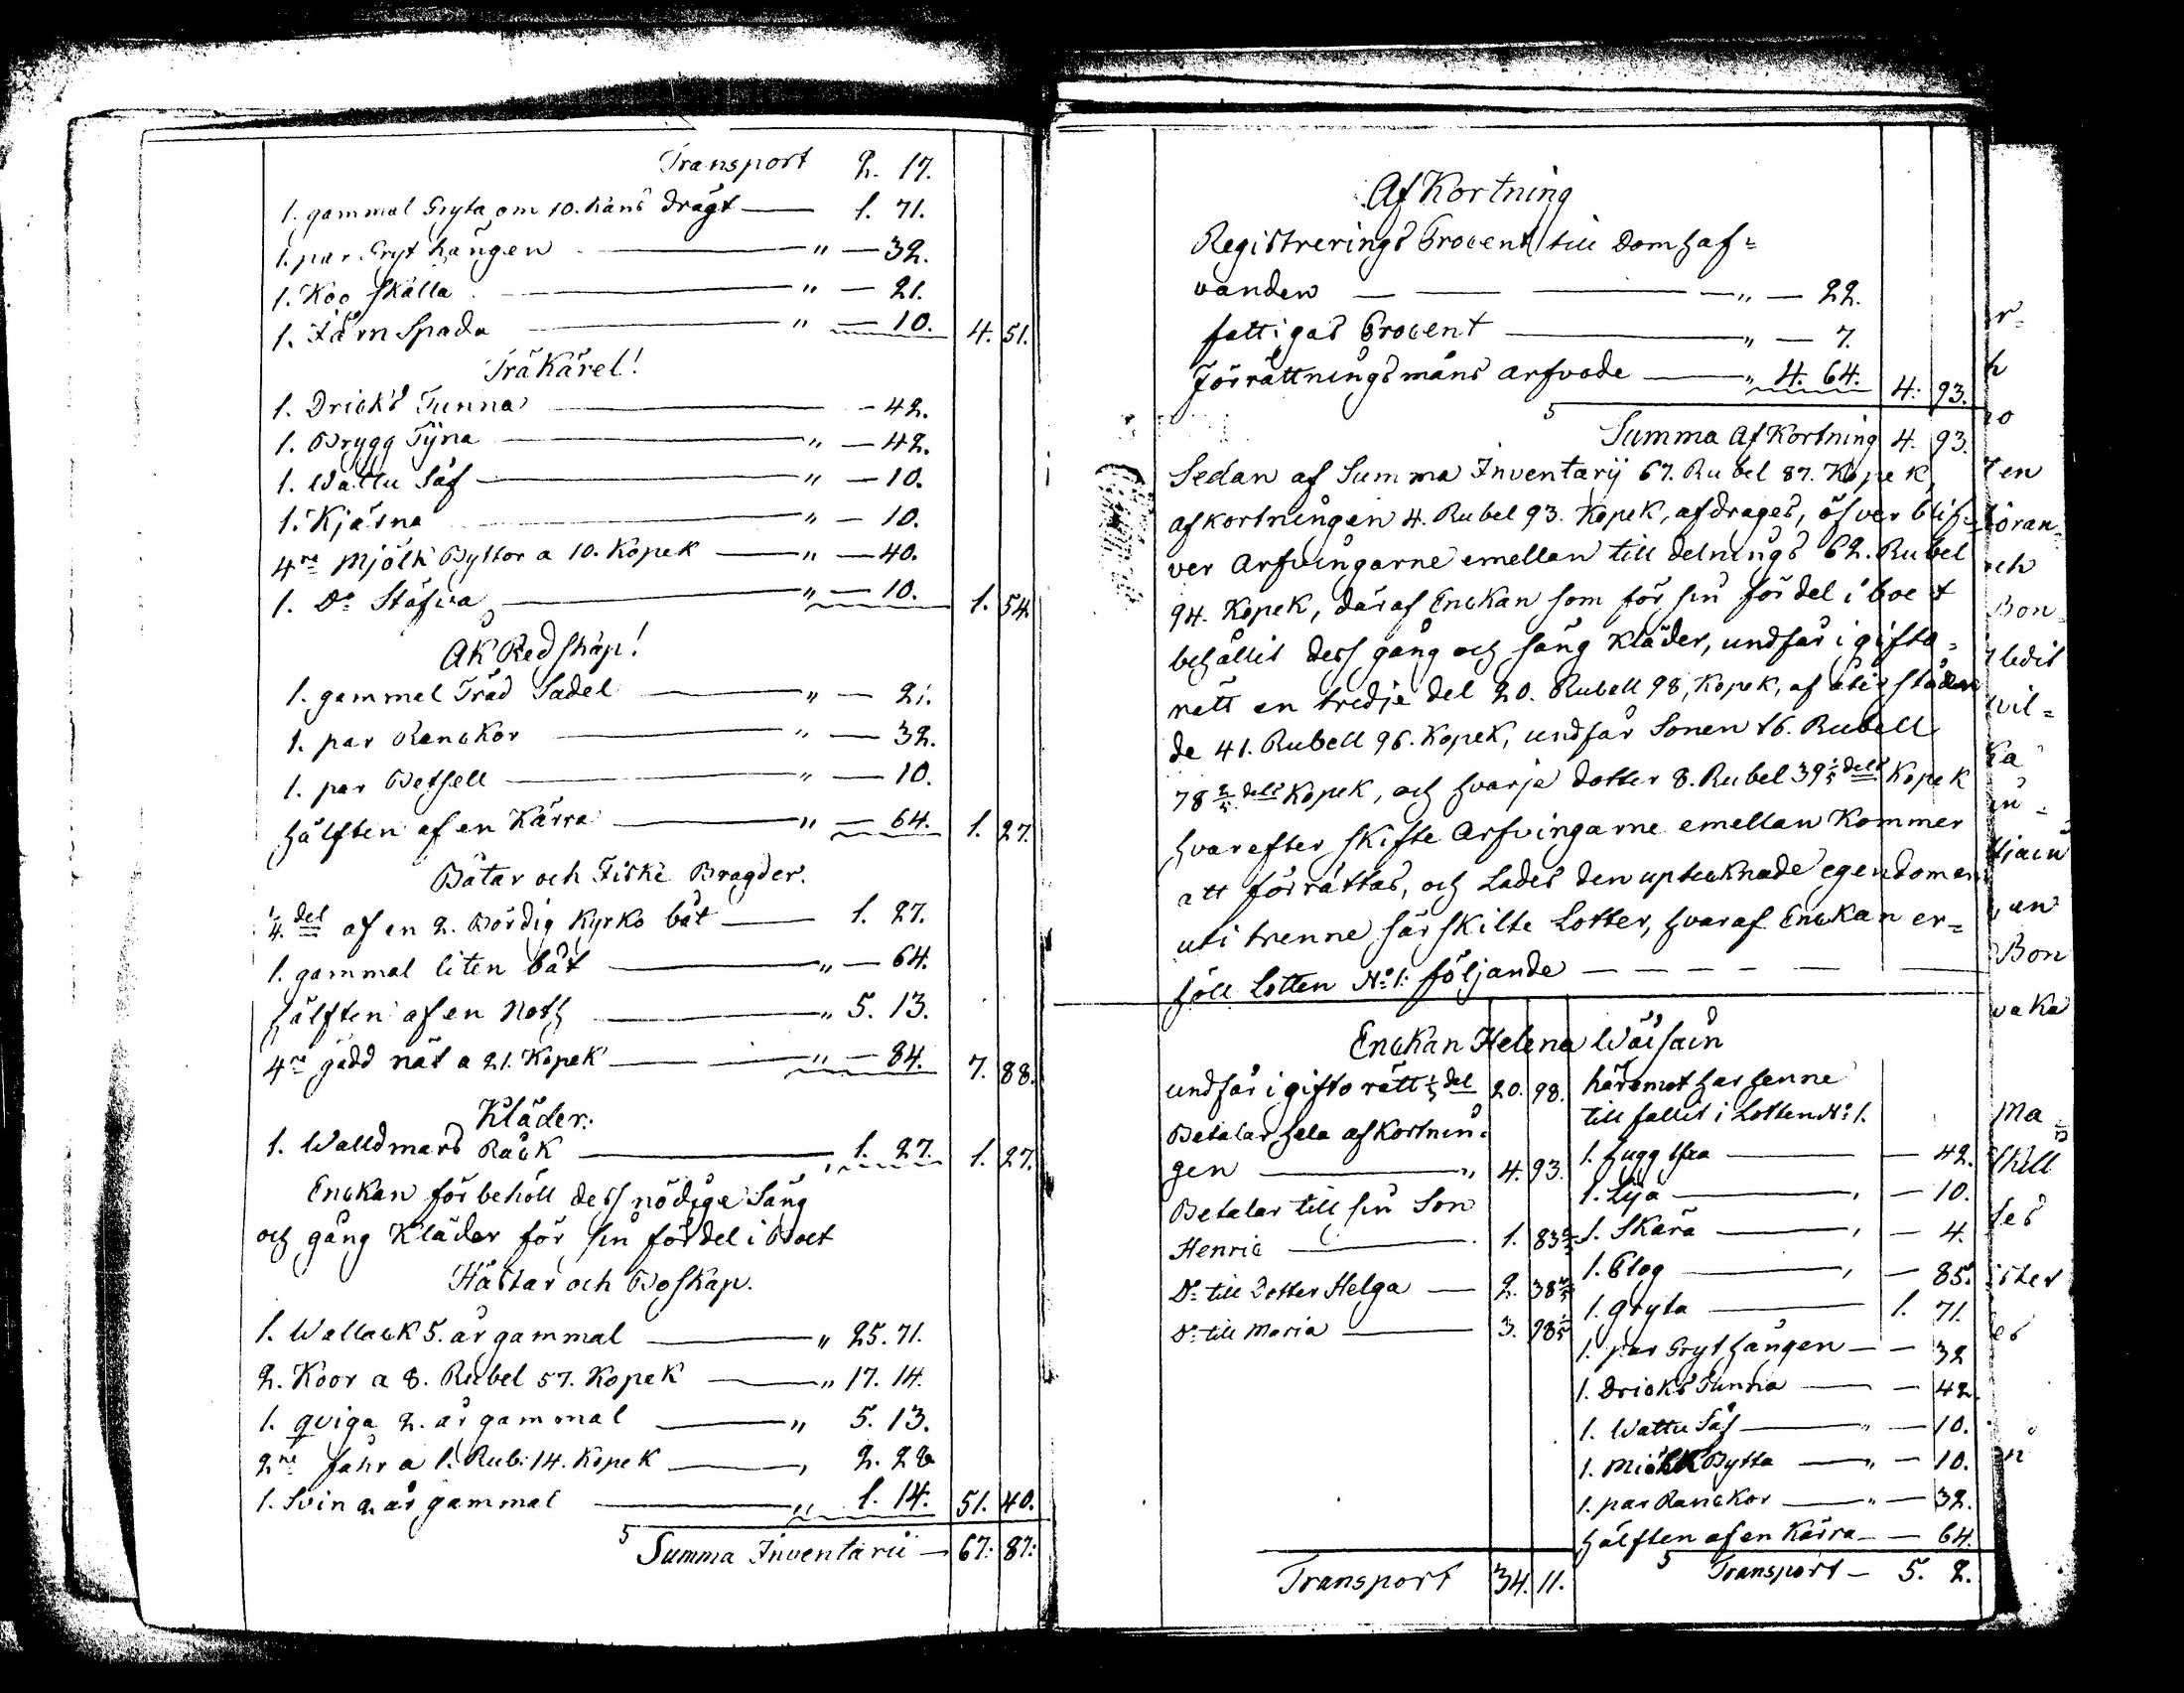 Transport 2. 17.
1. gammal Gryta om 10. kans drägt — 1. 71.
1. par Gryt hängen — " — 32.
1. Koo Skälla — " — 21.
1. Järn Spada — " — 10. 4. 51.
Träkärel!
1. Dricks Tunna — 42.
1. Brygg Tyna — " — 42.
1. Wattu Såf — " — 10.
1. Kjärna — " — 10.
4ra Mjölk Byttor a 10. Kopek — " — 40.
1. Do Stäfva — " — 10. 1. 54.
ÅkRedskap!
1. gammal Träd Sadel — " — 21.
1. par Renckor — " — 32.
1. par Betsell — " — 10.
hälften af en Kärra — " — 64. 1. 27.
Båtar och Fiske Bragder.
1/4. del af en 2. Bördig Kyrko båt — 1. 27.
1. gammal liten båt — " — 64.
hälften af en Noth — " 5. 13.
4ra gädd nät a 21. Kopek — " — 84. 7. 88.
Kläder.
1. Walldmars Råck — 1. 27. 1. 27.
Enckan förbehöll dess nödige Säng
och gång Kläder för sin fördel i Boet
Hästar och Boskap.
1. Wallack 5. år gammal — " 25. 71.
2. Koor a 8. Rubel 57. Kopek — " 17. 14.
1. qviga 2. år gammal — " 5. 13.
2ne fåhr a 1. Rub: 14. Kopek — , 2. 28
1. Svin 2. år gammal — " 1. 14. 51. 40.
Summa Inventarii — 67: 87:
AfKortning
Registrerings Procent till Domhaf=
vanden — " — 22.
fattigas Procent — " — 7.
Förrättningsmäns arfvode — " 4. 64. 4. 93.
Summa AfKortning 4. 93.
Sedan af Summa Inventarij 67. Rubel 87. Kopek,
afkortningen 4. Rubel 93. Kopek, afdrages, öfver blif=
ver Arfvingarne emellan till delnings 62. Rubel
94. Kopek, däraf Enckan som för sin fördel i boet
behållit dess gång och säng Kläder, undfår i gifto=
rätt en tredje del 20. Rubell 98, Kopek, af åter stående
de 41. Rubell 96. Kopek, undfår Sonen 16. Rubell
78 2/5 dels Kopek, och hvarje dotter 8. Rubel 39 1/5 dels Kopek
hvarefter skifte Arfvingarne emellan Kommer
att förrättas, och Lades den uptecknade egendomen
uti trenne särskilte Lotter, hvaraf Enckan er=
höll Lotten No 1: följande — — — — — —
Enckan Helena Wäisäin
undfår i gifto rätt 1/3 del 20. 98.
Betalar hela afkortnin=
gen — " 4. 93.
Betalar till sin Son
Henric — 1. 83
Do till Dotter Helga — 2. 38
Do till Maria — 3. 98
Transport 34. 11.
häremot har henne
till fallit i Lotten No 1.
1. hugg — — 42.
1. Lija — , — 10.
1. Skära — , — 4.
1. Plog — , — 85.
1. Gryta — 1. 71.
1. par Gryt hängen — — 32
1. Dricks Tunna — — 42.
1. Wattu Såf — " — 10.
1. Miölk Bytta — " — 10.
1. par Ranckor — " — 32.
hälften af en Kärra — — 64.
Transport — 5. 2.